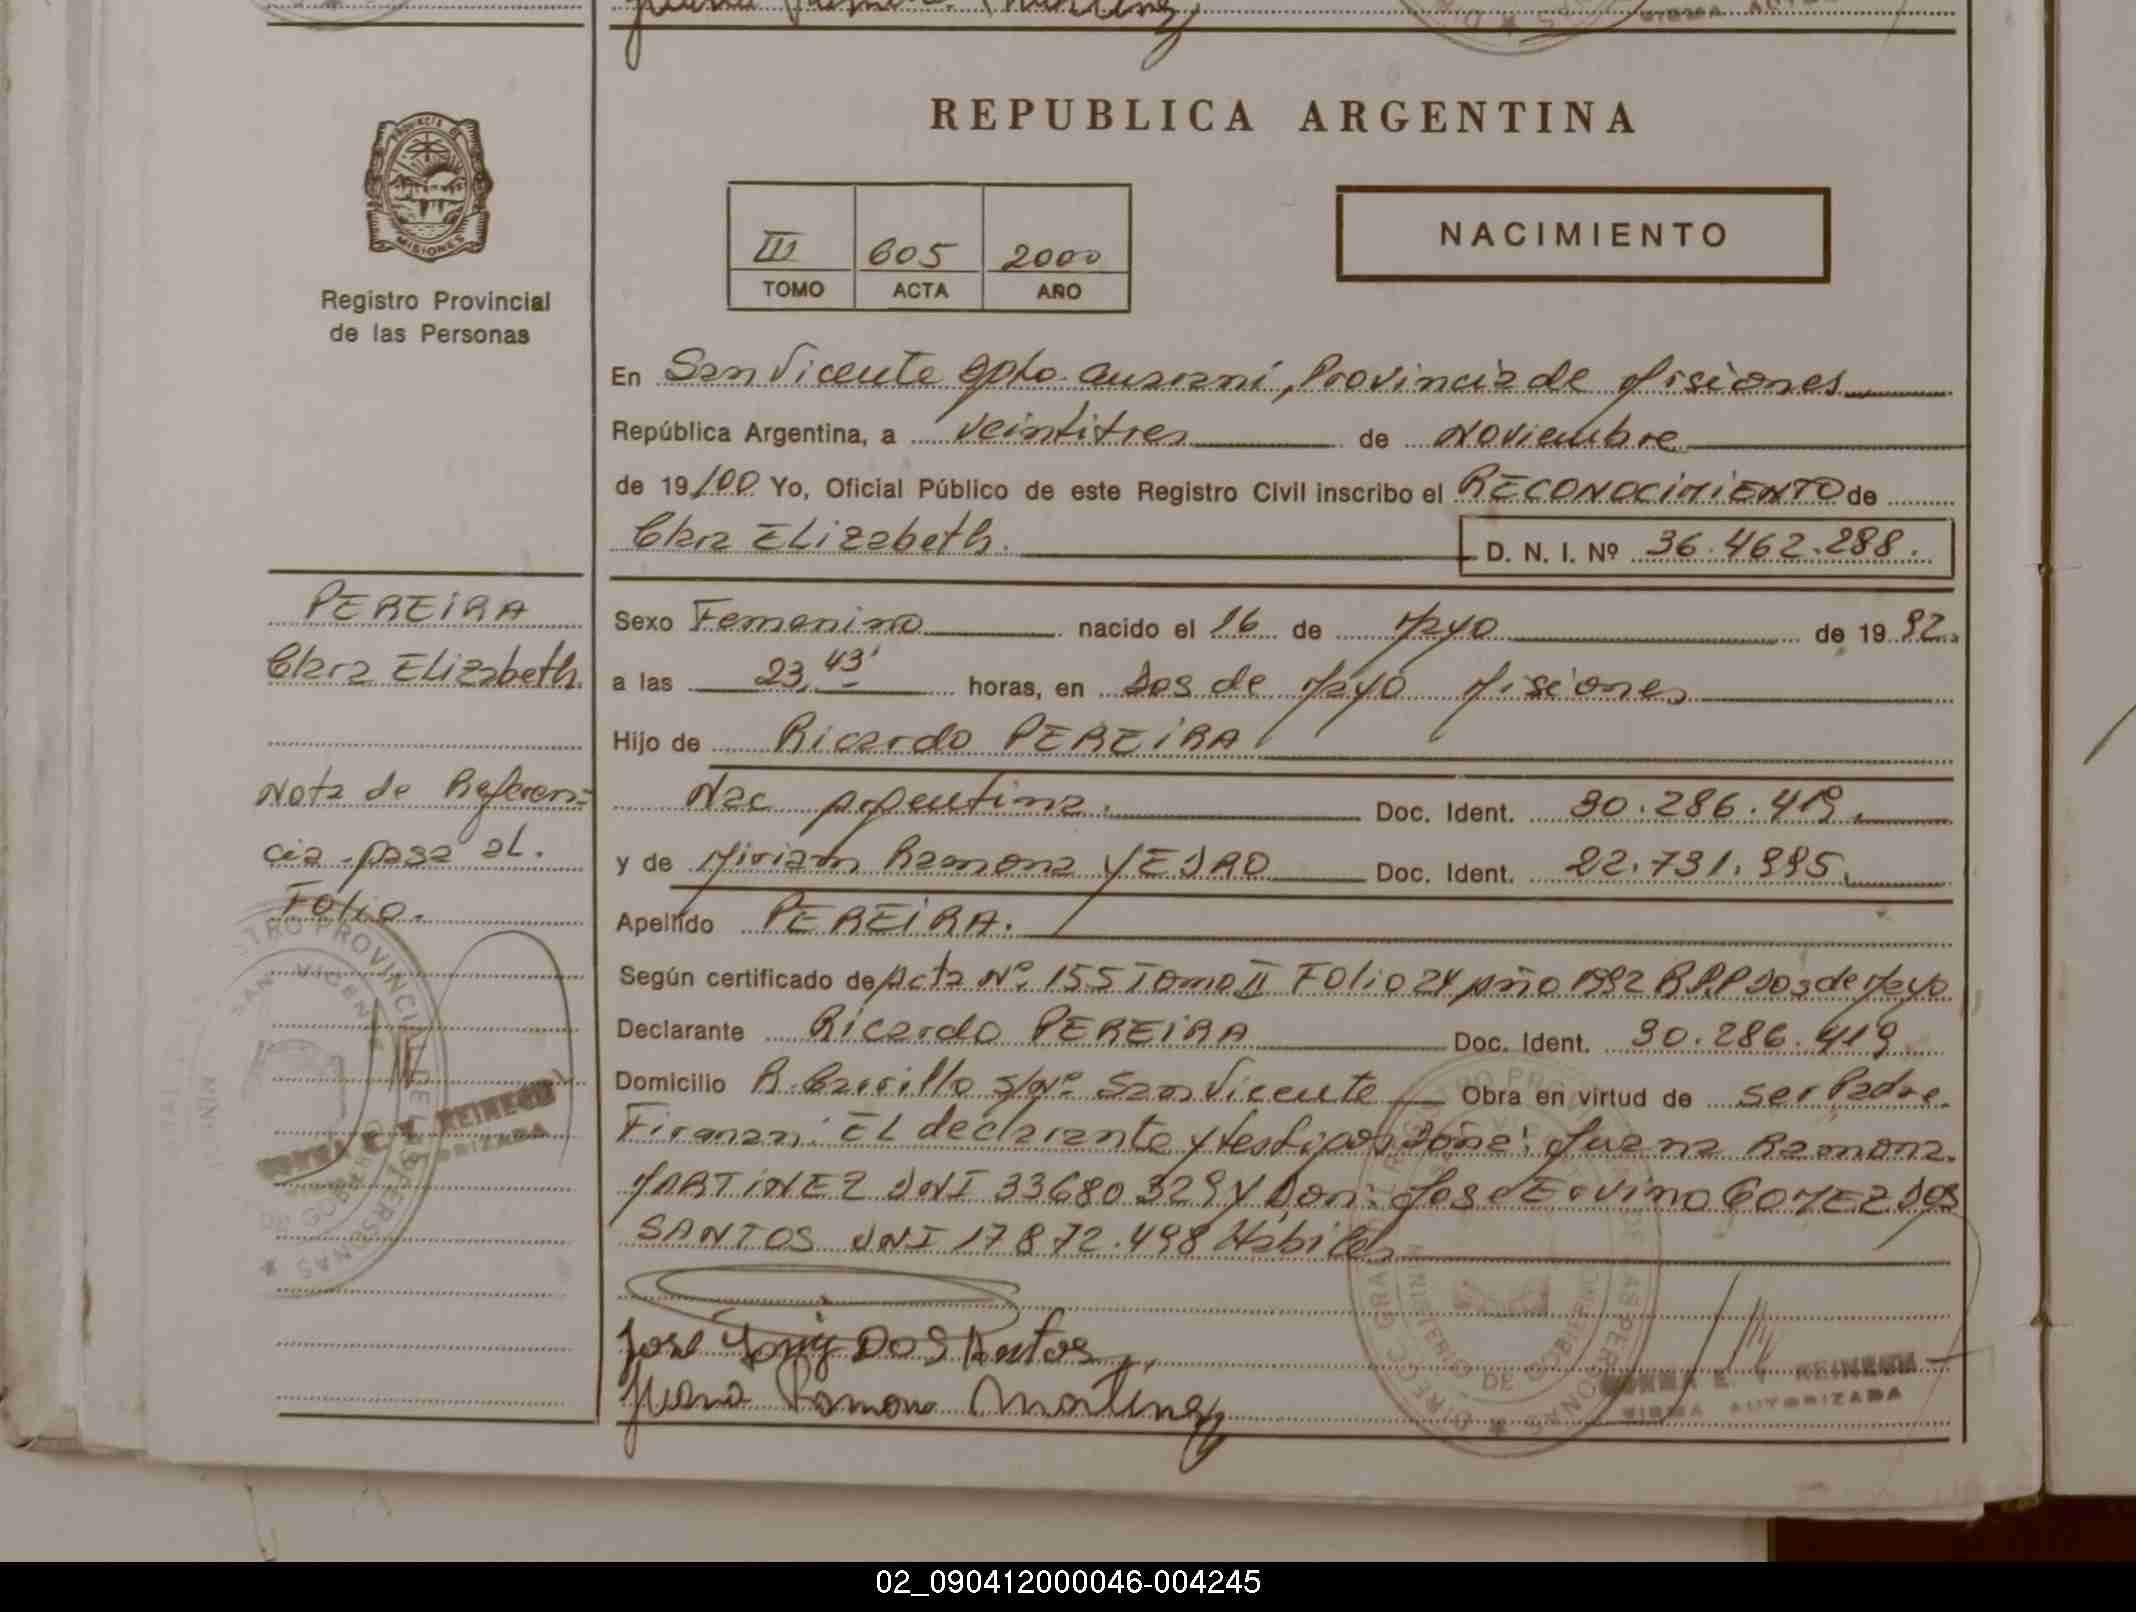 REPUBLICA ARGENTINA
PROVINCIA DE
MISIONES
Registro Provincial
de las Personas
III 605 2000
TOMO ACTA AÑO
NACIMIENTO
En San Vicente gpto. Guarani, Provincia de Misiones
República Argentina, a veintitres de Noviembre
de 19/00 Yo, Oficial Público de este Registro Civil inscribo el RECONOCIMIENTO de
Clara ELizabeth. D. N. I. Nº 36.462.288.
PEREIRA
Clara ELizabeth
Nota de Referen-
cia pasa al.
Folio.
Sexo Femenino nacido el 16 de Mayo de 19 92.
a las 23,43' horas, en Dos de Mayo Misiones
Hijo de Ricardo PEREIRA
Nac Argentina. Doc. Ident. 30.286.419.
y de Miriam Ramona YEDRO Doc. Ident. 22.731.995.
Apellido PEREIRA.
Según certificado de Acta Nº. 155 Tomo II Folio 24 Año 1992 R.P.P Dos de Mayo
Declarante Ricardo PEREIRA Doc. Ident. 30.286.419
Domicilio R. Carrillo s/Nº San Vicente Obra en virtud de ser Padre.
Firman: EL declarante y testigos Doña: Juana Ramona
MARTINEZ DNI 33680329 y Don: Jose Ervino GOMEZ DOS
SANTOS DNI 17872.498 Habiles
José DOS Santos
Juana Ramona Martinez
REINECK
FIRMA AUTORIZADA
02_090412000046-004245